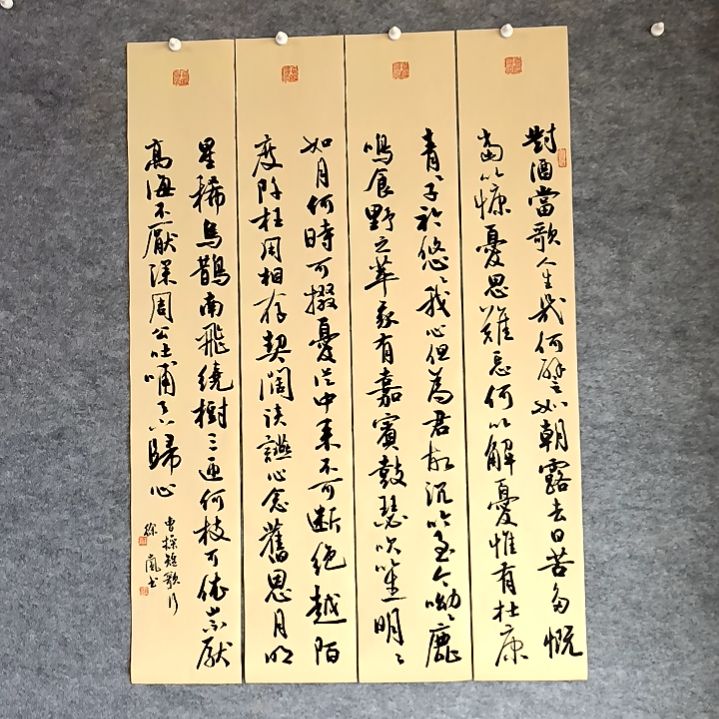 對酒當歌人生幾何譬如朝露去日苦多慨
當以慷憂思難忘何以解憂惟有杜康
青〻子衿悠〻我心但為君故沉吟至今呦〻鹿
鳴食野之苹我有嘉賓鼓瑟吹笙明〻
如月何時可掇憂從中来不可断絕越陌
度阡枉用相存契闊談讌心念舊恩月明
星稀烏鵲南飛繞樹三匝何枝可依山不厭
高海不厭深周公吐哺天下歸心
曹操短歌行
徐嵐书